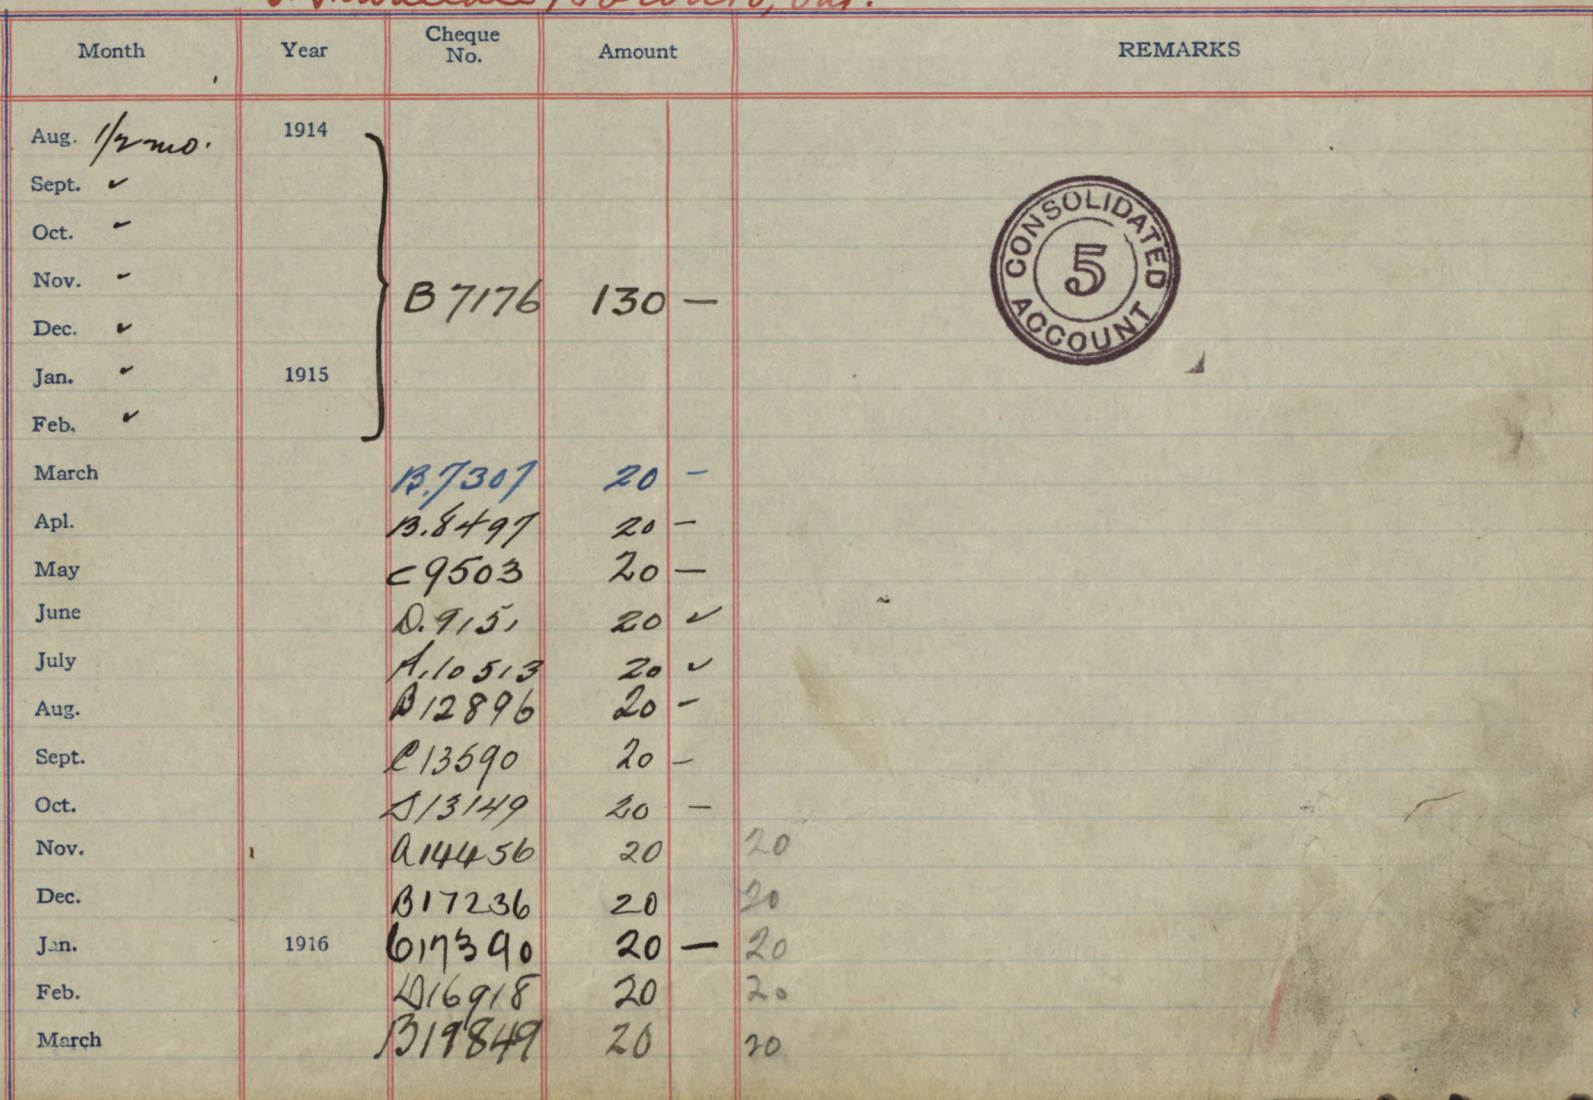 Toronto, Ont.
Month Year Cheque No. Amount REMARKS
Aug. 1/2 mo. 1914
Sept. ✓
Oct. ✓
Nov. ✓
CONSOLIDATED ACCOUNT 5
B 7176 130 —
Dec. ✓
Jan. ✓ 1915
Feb. ✓
March B.7307 20 –
Apl. B.8497 20 –
May C 9503 20 —
June D.9151 20 ✓
July A.10513 20 ✓
Aug. B12896 20 –
Sept. C13590 20 –
Oct. D13149 20 –
Nov. A14456 20 20
Dec. B17236 20 20
Jan. 1916 C17390 20 — 20
Feb. D16918 20 20
March B19849 20 20